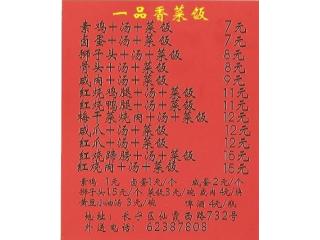 一品香菜饭
素鸡+汤+菜饭 7元
卤蛋+汤+菜饭 7元
狮子头+汤+菜饭 8元
骨头+汤+菜饭 8元
咸肉+汤+菜饭 9元
红烧鸡腿+汤+菜饭 11元
红烧鸭腿+汤+菜饭 11元
梅干菜烧肉+汤+菜饭 12元
咸爪+汤+菜饭 12元
红烧蹄髈+汤+菜饭 15元
红烧肉+汤+菜饭 15元
素鸡 1元 卤蛋1元/个 咸蛋2元/个
狮子头15元/个 菜饭3元/碗 咸肉4元/块
黄豆小油汤3元/碗 啤酒4元/瓶
地址：长宁区仙霞西路732号
外送电话：62387808